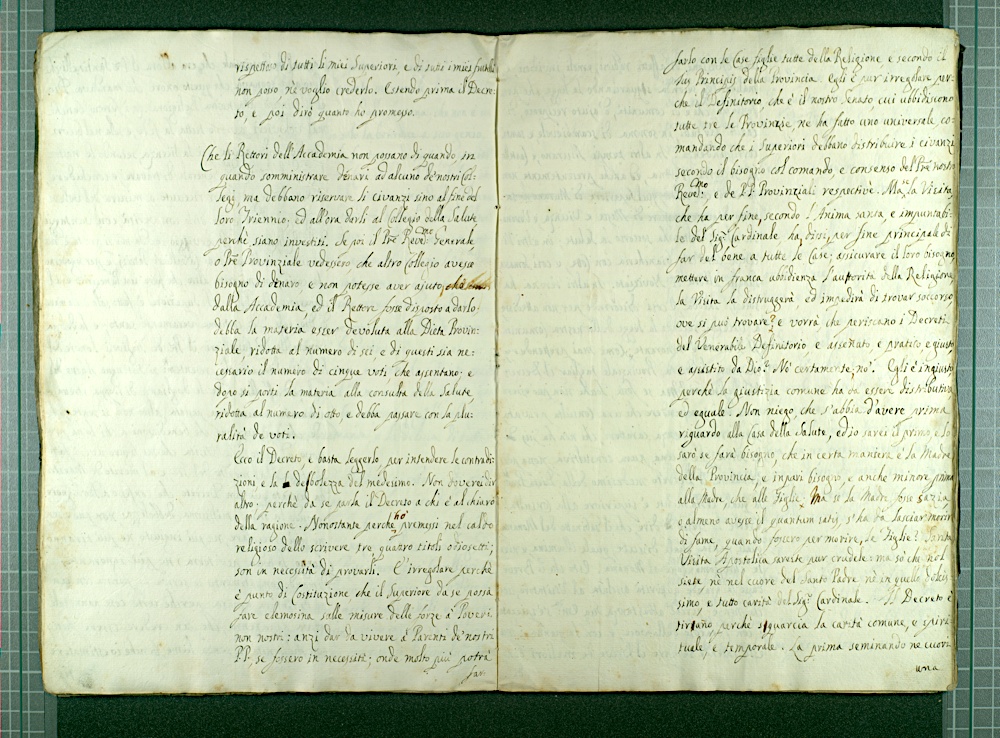 rispettoso di tutti li miei Superiori, e di tutti i miei fratelli
non posso ne voglio crederlo. Estendo prima il Decre-
to, e poi dirò quanto ho promesso.
Che li Rettori dell'Accademia non possano di quando in
quando somministrare denari ad alcuno de nostri Col-
legj ma debbano riservare li civanzi sino al fine del
loro Triennio, ed all'ora darli al Collegio della Salute
perchè siano investiti. Se poi il Pre Revdmo Generale
o Pre Provinciale vedessero che altro Collegio avesse
bisogno di denaro e non potesse aver ajuto
dalla Accademia, ed il Rettore fosse disposto a darlo:
debba la materia esser devoluta alla Dieta Provin-
ziale ridotta al numero di sei, e di questi sia ne-
cessario il numero di cinque voti che assentano: e
dopo si porti la materia alla consulta della Salute
ridotta al numero di otto e debba passare con la plu-
ralità de voti.
Ecco il Decreto, e basta leggerlo per intendere le contradi-
zioni e la debbolezza del medesimo. Non doverei dir
altro perchè da se parla il Decreto a chi è al chiaro
della ragione. Nonostante perchè ho premessi nel caldo
religioso dello scrivere tre quatro titoli odiosetti;
son in necessità di provarli. E' irregolare perchè
è punto di Costituzione che il Superiore da se possa
fare elemosina sulle misure delle forze a Poveri
non nostri: anzi dar da vivere a Parenti de nostri
P.P. se fossero in necessità; onde molto più potrà
far-
farlo con le Case figlie tutte della Religione, e secondo il
Principij della Provincia. Egli è pur irregolare per-
che il Definitorio, che è il nostro Senato cui ubbidiscono
tutte tre le Provinzie, ne ha fatto uno universale co-
mandando che i Superiori debbano distribuire i civanzi
secondo il bisogno col comando, e consenso del Pre nostro
Revdmo, e de P.P. Provinziali respective. Ma la Visita
che ha per fine, secondo l'Anima santa, e impuntabi-
le del Sigr Cardinale ha, dissi, per fine principale di
far del bene a tutte le Case; assicurare il loro bisogno,
mettere in franca ubidienza l'auttorità della Religione
la Visita la distruggerà, ed impedirà di trovar soccorso
ove si può trovare? e vorrà che periscano i Decreti
del Venerabile Definitorio e assennato, e pratico, e giusto
e assistito da Dio? No certamente no. Egli è ingiusto
perchè la giustizia comune ha da essere distributiva
ed eguale. Non niego, che s'abbia d'avere prima
riguardo alla Casa della Salute, ed io sarei il primo, e lo
sarò se farà bisogno, che in certa maniera è la Madre
della Provincia, e in pari bisogno, e anche minore prima
alla Madre che alle Figlie. Ma se la Madre fosse sazia,
e almeno avesse il quantum satis, s'ha da lasciar morir
di fame, quando fossero per morire, le Figlie? Santa
Visita Apostolica sareste pur crudele: ma so che nol
siete nè nel cuore del Santo Padre nè in quello dolcis-
simo, e tutto carità del Sigr Cardinale. Il Decreto è
tiranno perchè squarcia la carità comune, e spiri-
tuale, e temporale. La prima seminando ne cuori
una